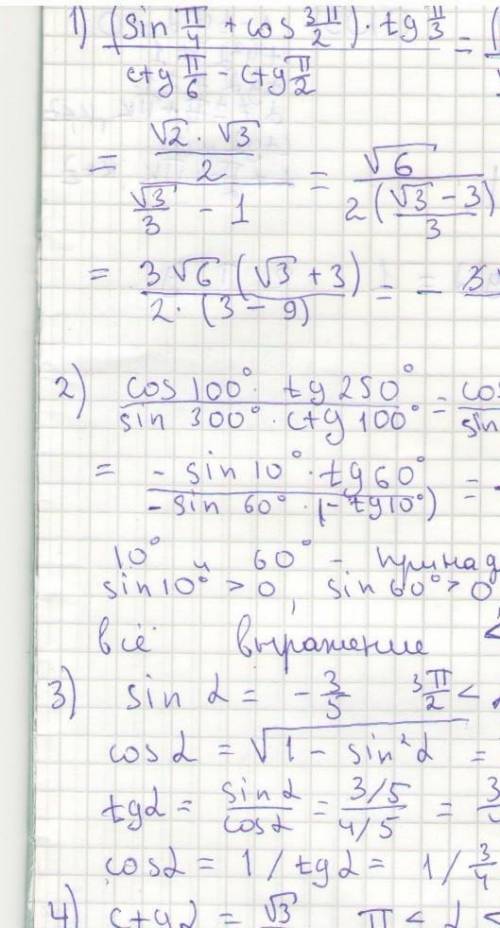 1) (sin π/4 + cos 3π/2) · tg π/3 / (ctg π/6 - ctg π/2) = (
= (√2 · √3 / 2) / (√3/3 - 1) = √6 / (2(√3 - 3)/3)
= 3√6 (√3 + 3) / (2 · (3 - 9)) = - 3
2) cos 100° · tg 250° / (sin 300° · ctg 100°) = cos / sin
= - sin 10° · tg 60° / (- sin 60° · (- tg 10°)) = -
10° и 60° - принад
sin 10° > 0, sin 60° > 0
всё выражение <
3) sin α = - 3/5 3π/2 <
cos α = √(1 - sin²α) =
tg α = sin α / cos α = (3/5) / (4/5) = 3
cos α = 1 / tg α = 1 / 3/4
4) ctg α = √3 π < α <